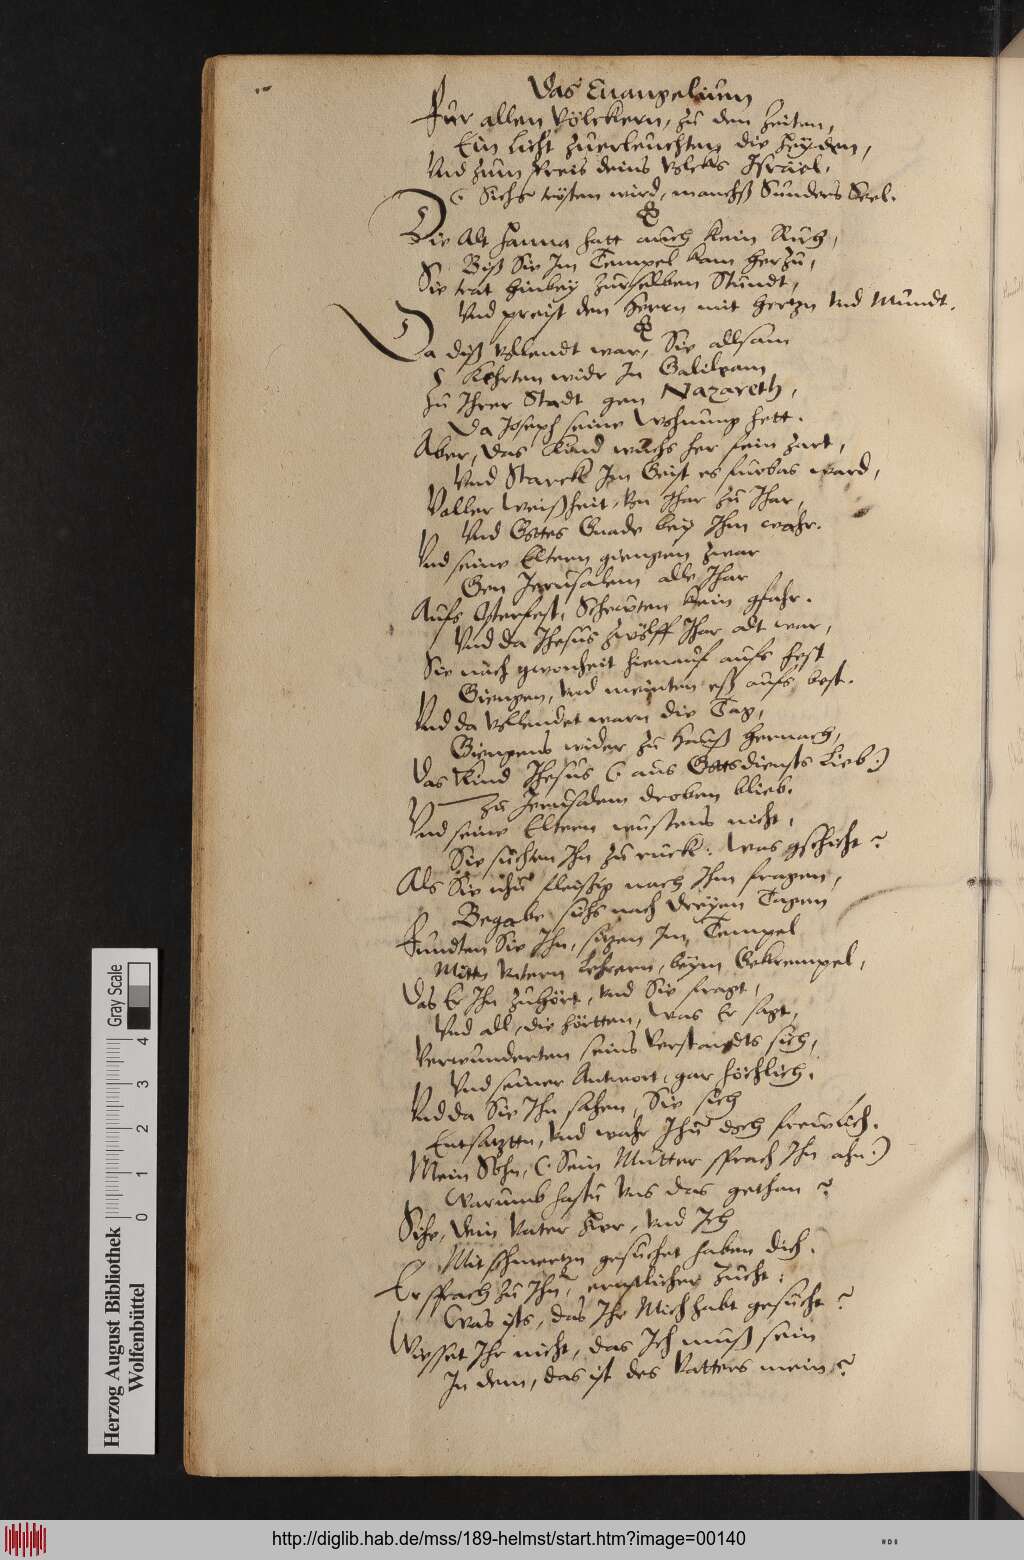 Das Euangelium
Fur allen Völckern, zu den Zeiten,
Ein Licht zuerleuchten die Heyden,
Vnd zum Preis deins Volcks Israel,
Sichs trösten wird, manchß Sünders Seel.
Die Alt Hanna hatt auch kein Ruh,
Biß Sie Im Tempel kam herzu,
Sie trat hinbey zurselben Stundt,
Vnd preist den Herrn mit Hertzn Vnd Mundt.
Da diß Vollendt war, Sie allsam
Kehrten widr In Galileam
Zu Ihrer Stadt gen Nazareth,
Da Joseph seine Wohnung hett.
Aber, das Kind wuchs her fein zart,
Vnd Starck Im Geist es furbas ward,
Voller Weißheit, Von Ihar zu Ihar,
Vnd Gottes Gnade bey Ihm wahr.
Vnd seine Eltern giengen zwar
Gen Jerusalem alle Ihar
Aufs Osterfest, Scheuten kein gfahr.
Vnd da Ihesus zwölff Ihar alt war,
Sie nach gwonheit hienauf aufs fest
Giengen, Vnd meinten eß aufs best.
Vnd da Vollendet warn die Tag,
Giengens wider zu Hauß hernach,
Das Kind Ihesus (aus Gottsdiensts Lieb)
zu Jerusalem droben blieb.
Vnd seine Eltern wustens nicht,
Sie suchten Ihn zu ruck: Was gschicht?
Als Sie nhu fleissig nach Ihm fragen,
Begabe sichs nach dreyen Tagen
Fundten Sie Ihn, sitzen Im Tempel
Mitten Vntern Lehrern, beym Gekrempel,
Das Er Ihn zuhört, Vnd Sie fragt,
Vnd all, die hörtten, Was Er sagt,
Verwunderten seins Verstandts sich,
Vnd seiner Antwort, gar höchlich.
Vnd da Sie Ihn sahen, Sie sich
Entsatzten, Vnd wahr Ihn doch freudlich.
Mein Sohn, (Sein Mutter sprach Ihn ahn)
Warumb hastu Vns das gethan?
Sihe, dein Vater hie, Vnd Ich
Mit schmertzn gesuchet haben dich.
Er sprach zu Ihn, ernstlicher Zucht:
Was ists, das Ihr Mich habt gesucht?
Wisset Ihr nicht, das Ich muß sein
In dem, das ist des Vatters mein?
Gray Scale
0 1 2 3 4
Herzog August Bibliothek
Wolfenbüttel
http://diglib.hab.de/mss/189-helmst/start.htm?image=00140